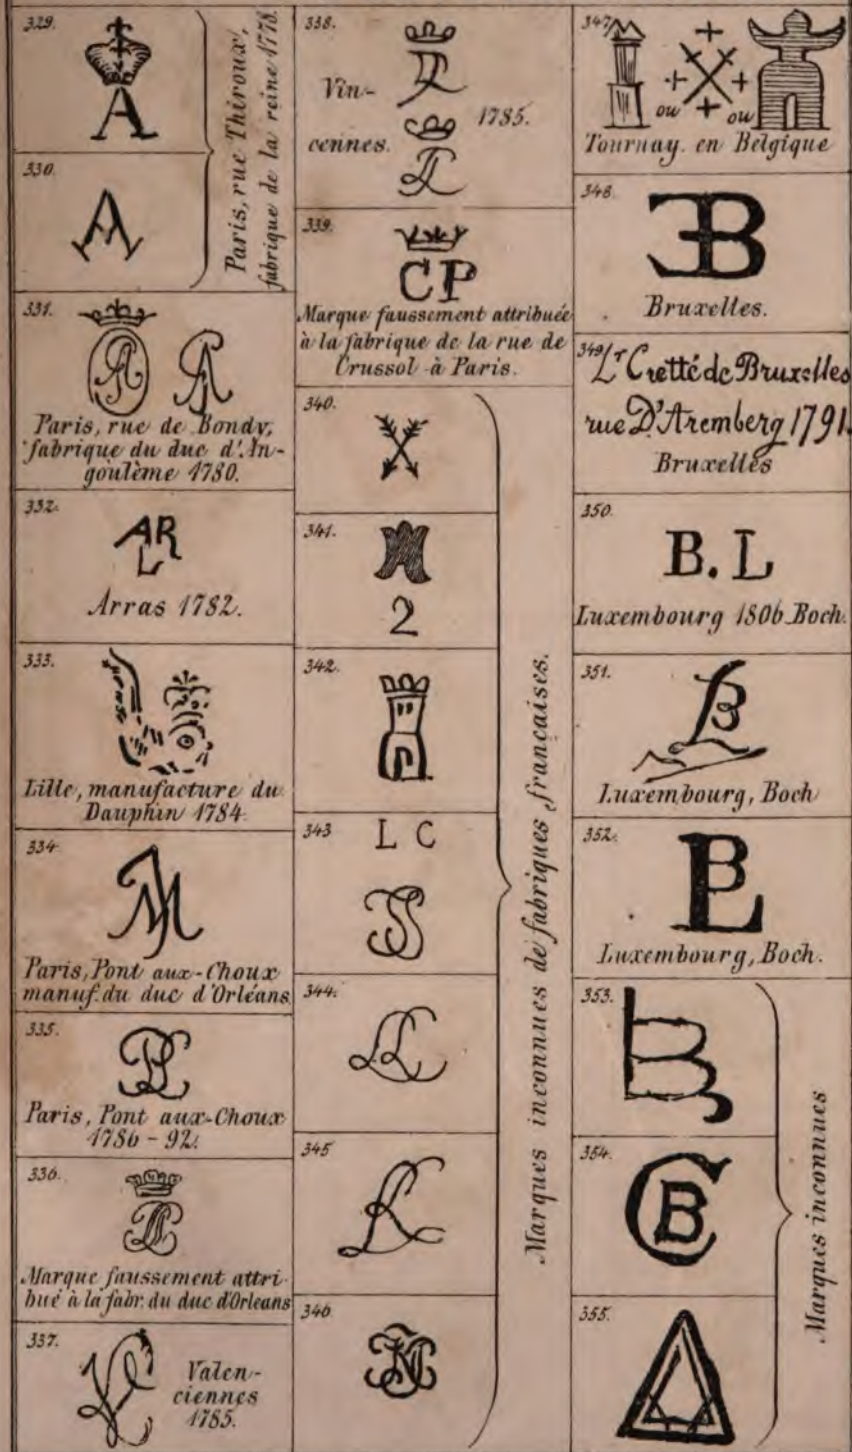 329.
A
330.
A
Paris, rue Thiroux,
fabrique de la reine 1778.
331.
Paris, rue de Bondy,
fabrique du duc d'An-
goulème 1780.
332.
AR
L
Arras 1782.
333.
Lille, manufacture du
Dauphin 1784
334
Paris, Pont aux-Choux
manuf. du duc d'Orléans
335.
Paris, Pont aux-Choux
1786-92.
336.
Marque faussement attri-
bué à la fabr. du duc d'Orleans
337.
Valen-
ciennes
1785.
338.
Vin-
cennes.
1785.
339.
CP
Marque faussement attribuée
à la fabrique de la rue de
Crussol à Paris.
340.
341.
2
342.
343
L C
344.
345
346
Marques inconnues de fabriques françaises.
347
ou ou
Tournay. en Belgique
348.
B
Bruxelles.
349
Lr Cretté de Bruxelles
rue D'Aremberg 1791.
Bruxelles
350.
B. L
Luxembourg 1806 Boch.
351.
Luxembourg, Boch
352.
BL
Luxembourg, Boch.
353.
354.
CB
355.
Marques inconnues